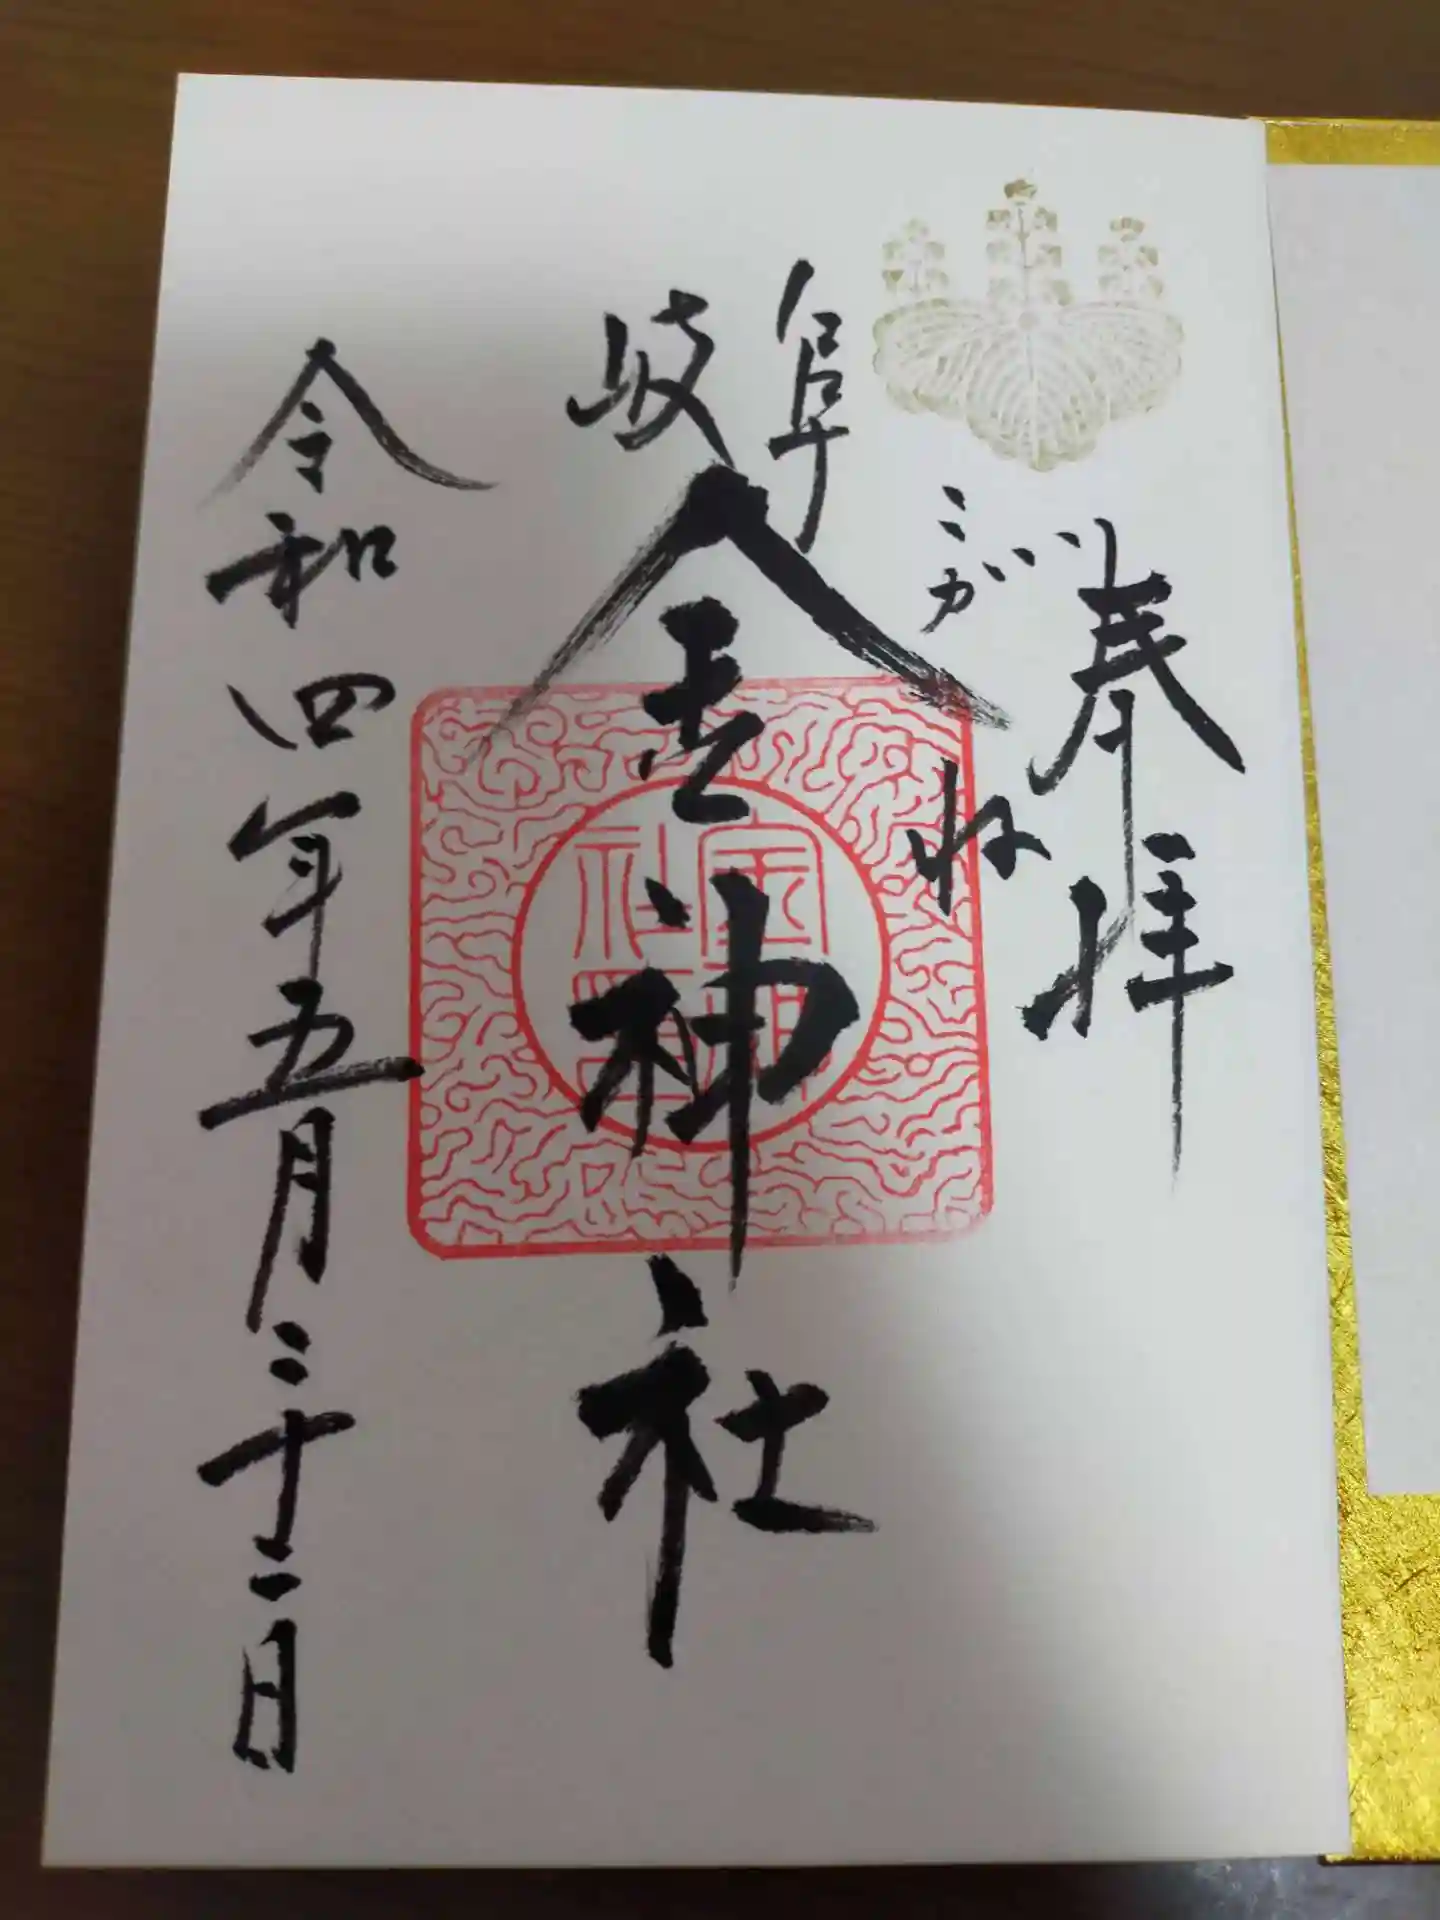 奉拝
こがね
岐阜
金神社
金神社印
令和四年五月三十一日